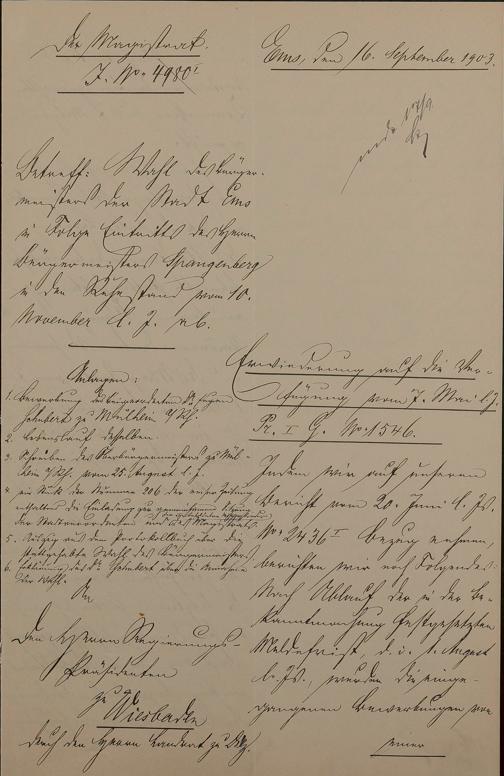 Der Magistrat.
J. No. 4980 I
Ems, den 16. September 1903.
Betreff: Wahl des Bürger-
meisters der Stadt Ems
in Folge Eintritts des Herrn
Bürgermeisters Spangenberg
in den Ruhestand vom 10.
November l. J. ab.
Anlagen:
1. Bewerbung des Beigeordneten Dr. Eugen
Schubert zu Mülheim a/Rh.
2. Lebenslauf desselben.
3. Schreiben des Oberbürgermeisters zu Mül-
heim a/Rh. vom 25. August l. J.
4. ein Stück der Nummer 206 der Emser Zeitung
enthaltend die Einladung zur
der Stadtverordneten und des Magistrats.
5. Auszug aus dem Protokollbuch über die
stattgehabte Wahl des Bürgermeisters
6. Erklärung des Dr. Schubert über die Annahme
der Wahl.
An
den Herrn Regierungs-
Präsidenten
zu
Wiesbaden
durch den Herrn Landrat zu
Erwiederung auf die Ver-
fügung vom 7. Mai l. J.
Pr. I G. No. 1546.
Indem wir auf unseren
Bericht vom 20. Juni l. Js.
No. 2436 I Bezug nehmen,
berichten wir noch Folgendes:
Nach Ablauf der in der Be-
kanntmachung festgesetzten
Meldefrist, d. i. 1. August
l. Js., wurden die einge-
gangenen Bewerbungen von
einer